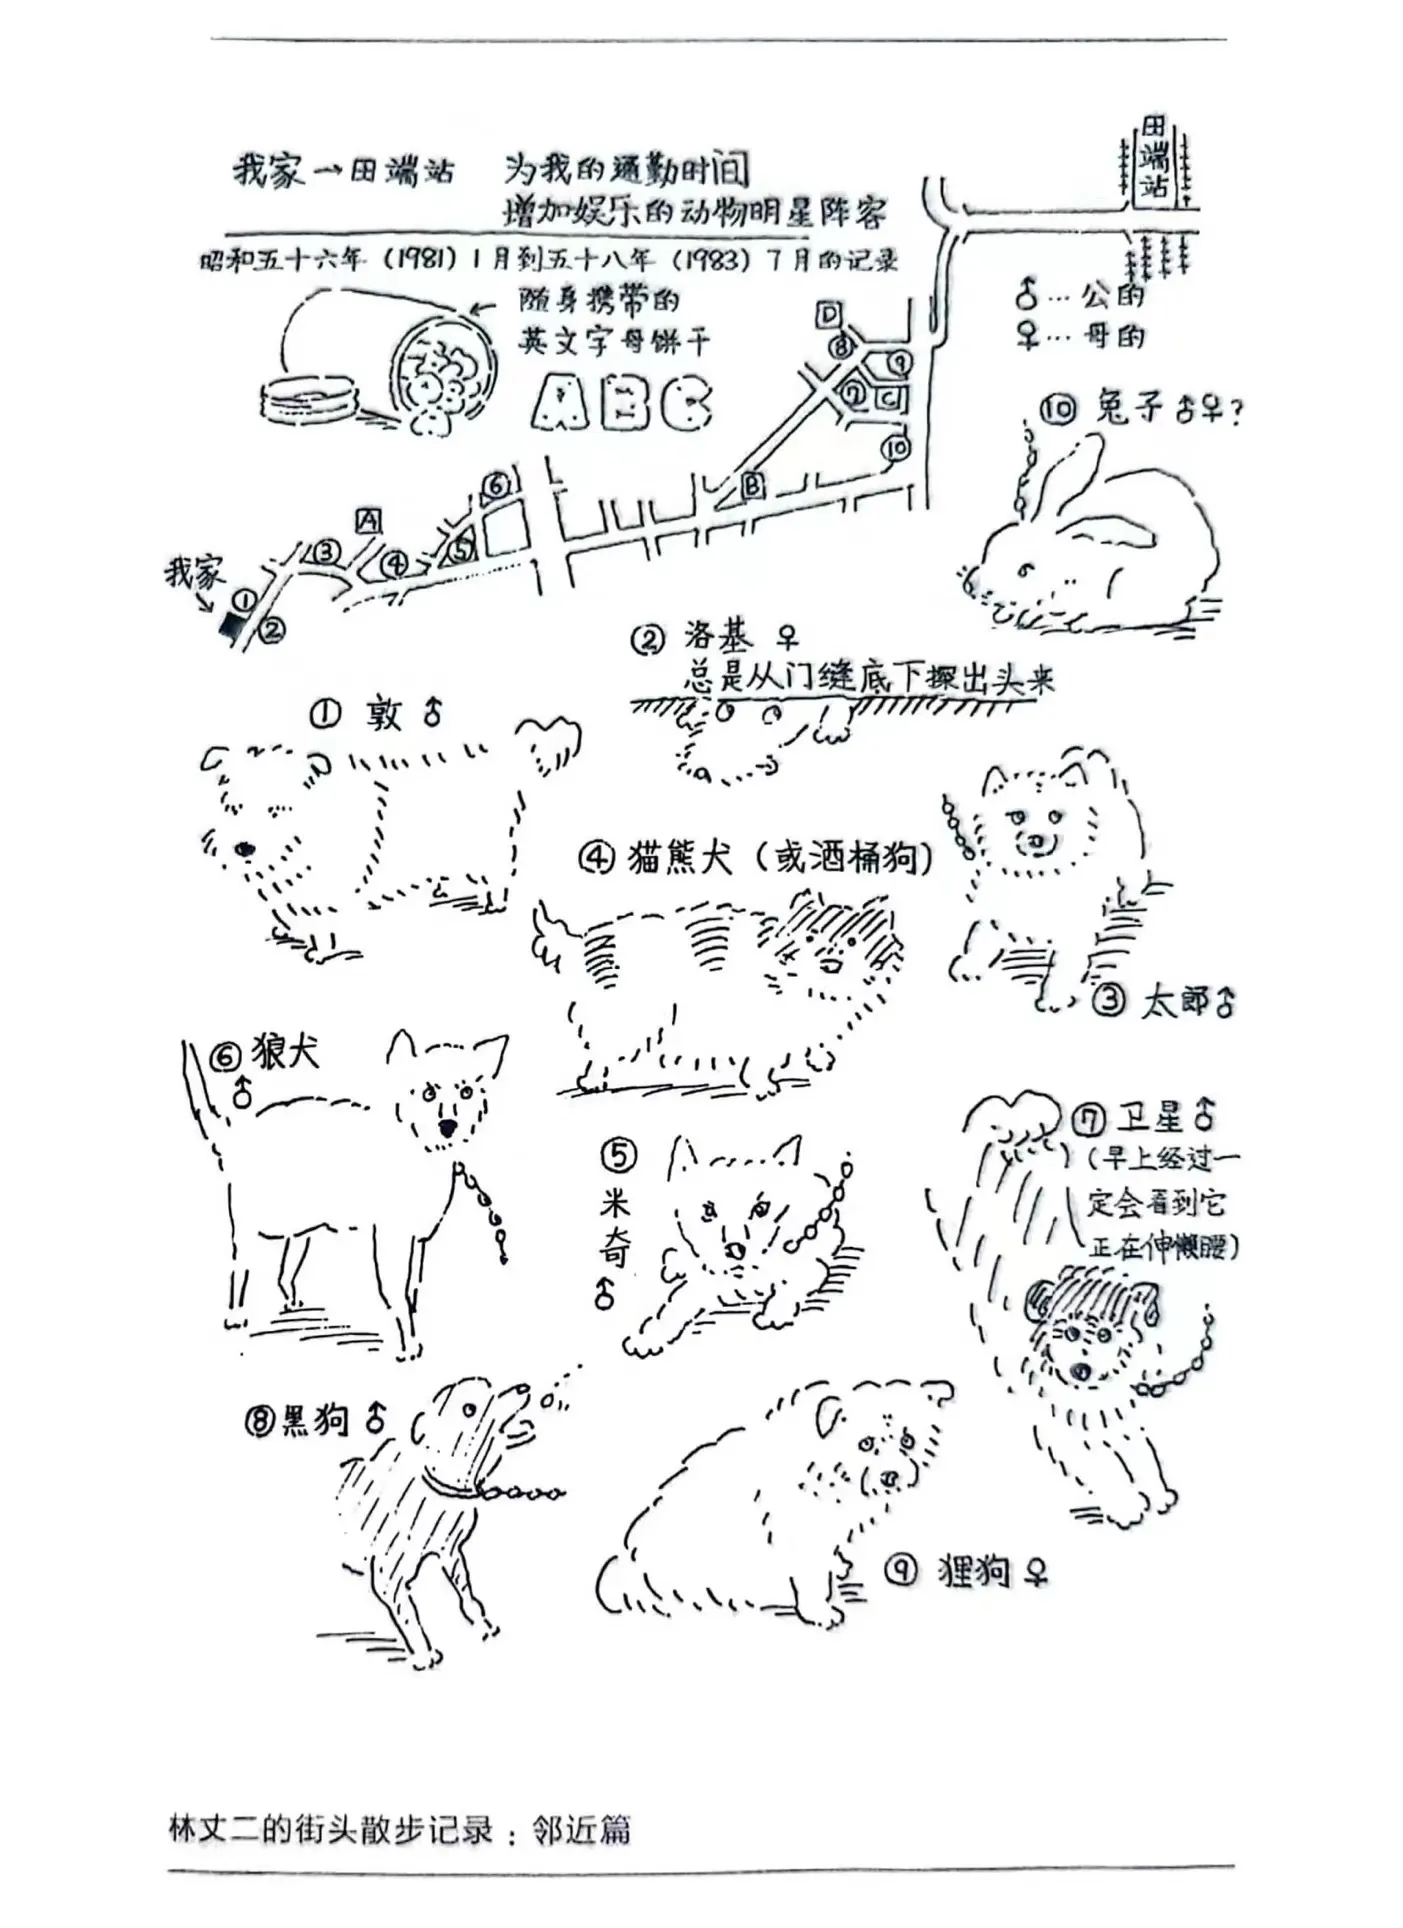 我家→田端站 为我的通勤时间
增加娱乐的动物明星阵容
昭和五十六年（1981）1月到五十八年（1983）7月的记录
随身携带的
英文字母饼干
A B C
田端站
♂…公的
♀…母的
⑩ 兔子 ♂♀?
D
⑧
⑨
⑦
C
⑩
B
⑥
A
③
④
⑤
我家
①
②
② 洛基 ♀
总是从门缝底下探出头来
① 敦 ♂
④ 猫熊犬（或酒桶狗）
③ 太郎♂
⑥ 狼犬
♂
⑤
米奇
♂
⑦ 卫星♂
（早上经过一
定会看到它
正在伸懒腰）
⑧黑狗♂
⑨ 狸狗♀
林丈二的街头散步记录：邻近篇